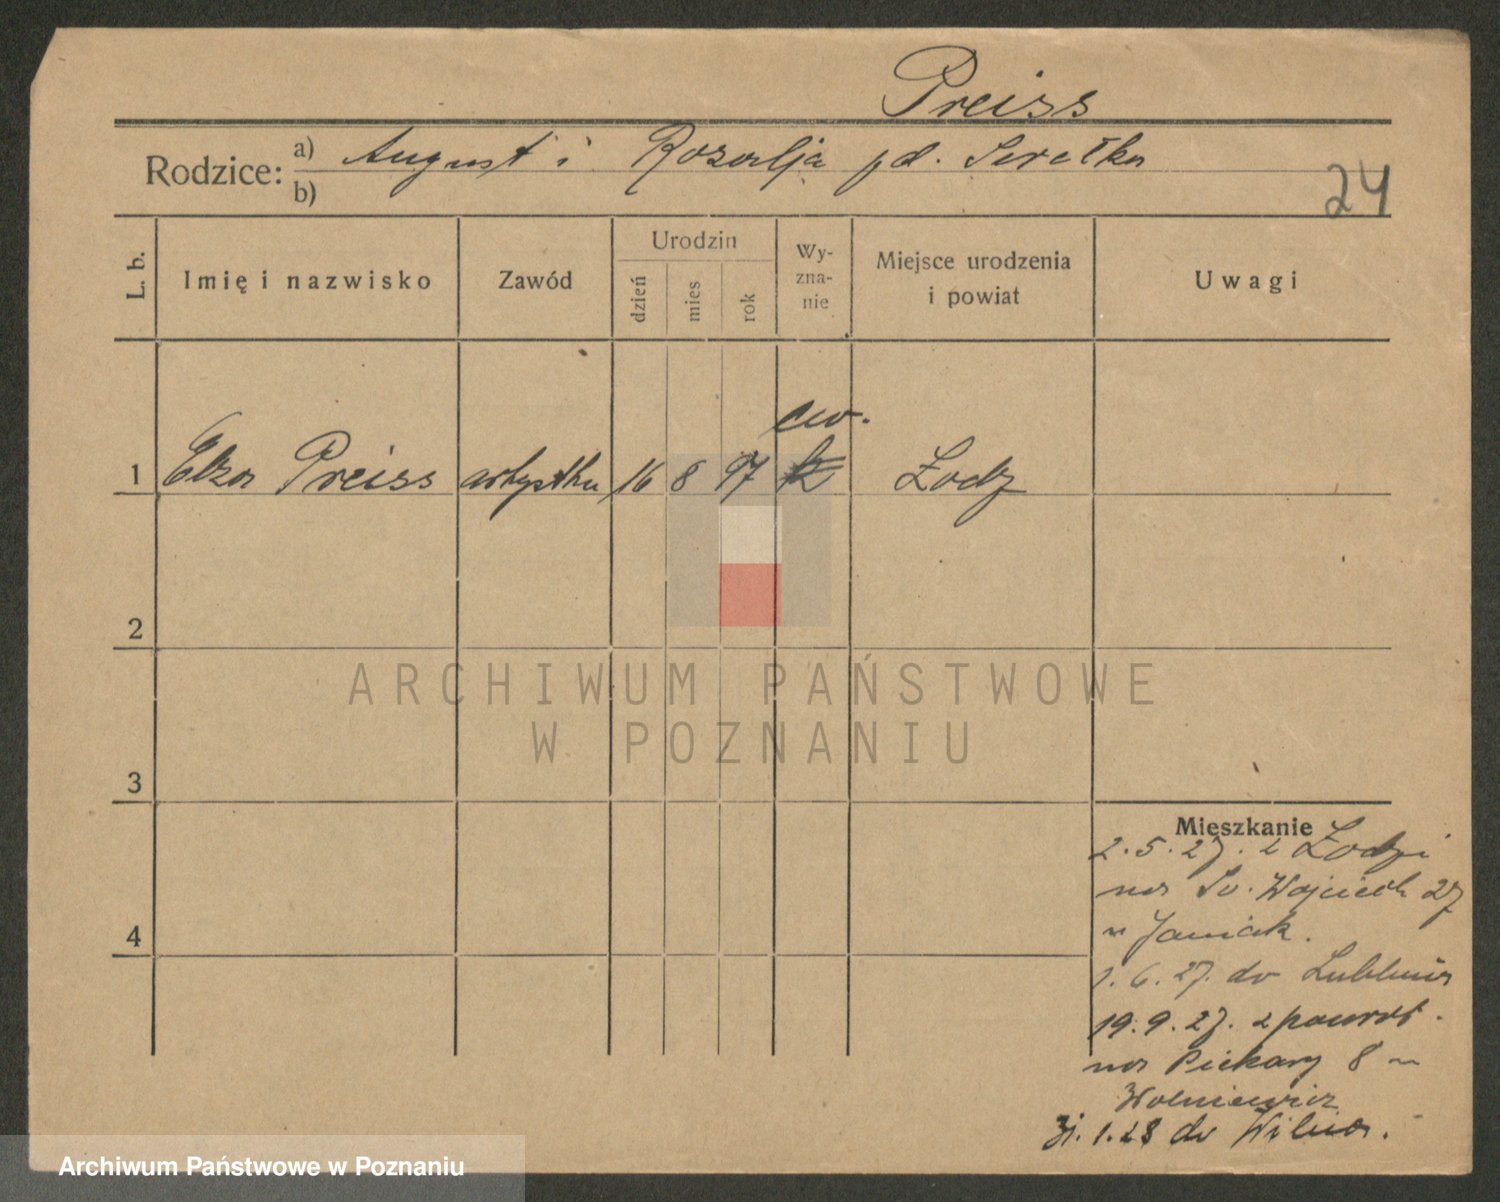 Preiss
Rodzice: a) August i Rozalja pd. Serełka
b)
24
L. b. Imię i nazwisko Zawód Urodzin dzień mies rok Wy-zna-nie Miejsce urodzenia i powiat Uwagi
ew.
1 Elza Preiss artystka 16 8 97 k Łodz
2
3
4
ARCHIWUM PAŃSTWOWE
W POZNANIU
Mieszkanie
2.5.27. z Łodzi
na Św. Wojciech 27
u Janiak.
1.6.27. do Lublina
19.9.27. z powrot.
na Piekary 8 u
Wolniewicz
31.1.28 do Wilna.
Archiwum Państwowe w Poznaniu